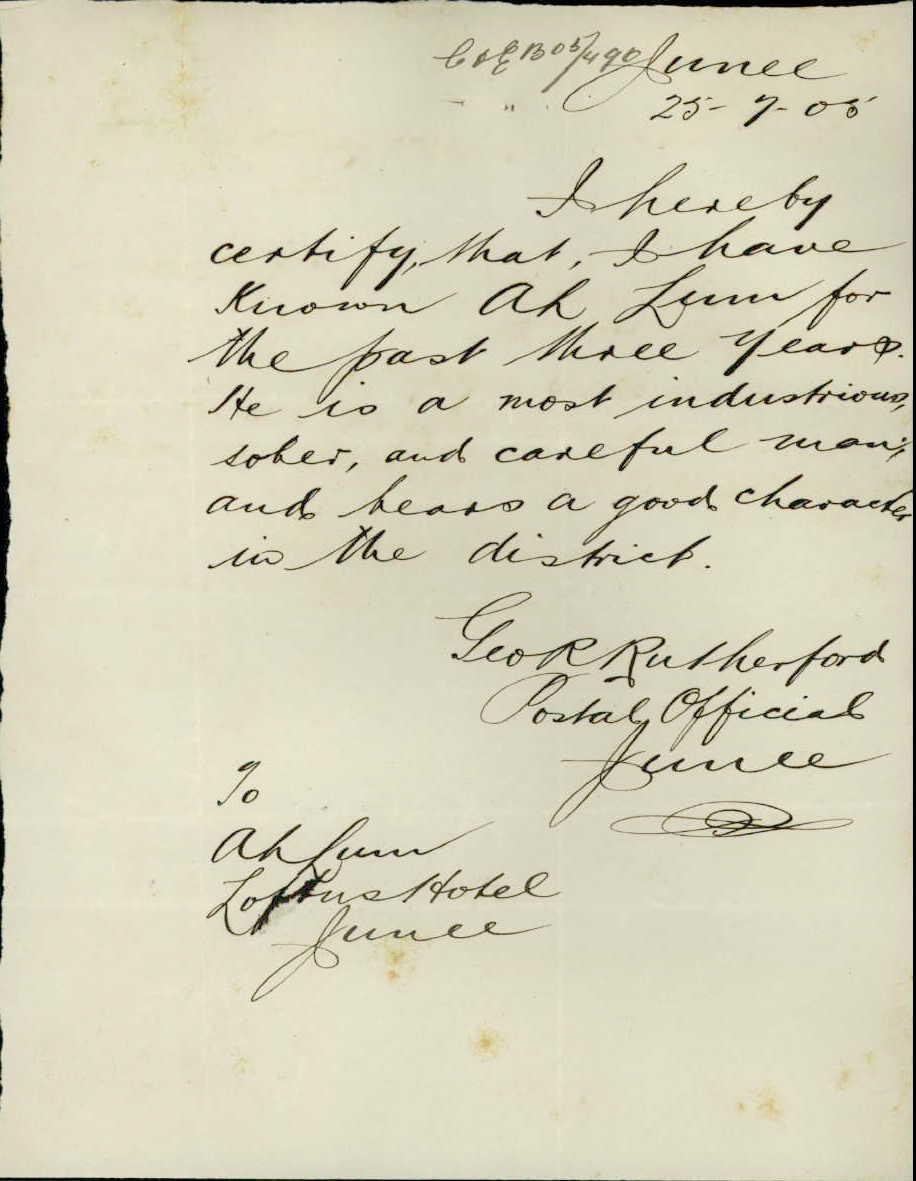 C & E B 05/490 Junee
25-7-05
I hereby
certify, that, I have
Known Ah Lum for
the past three years.
He is a most industrious,
sober, and careful man;
and bears a good character
in the district.
Geo R Rutherford
Postal Official
Junee
To
Ah Lum
Loftus Hotel
Junee